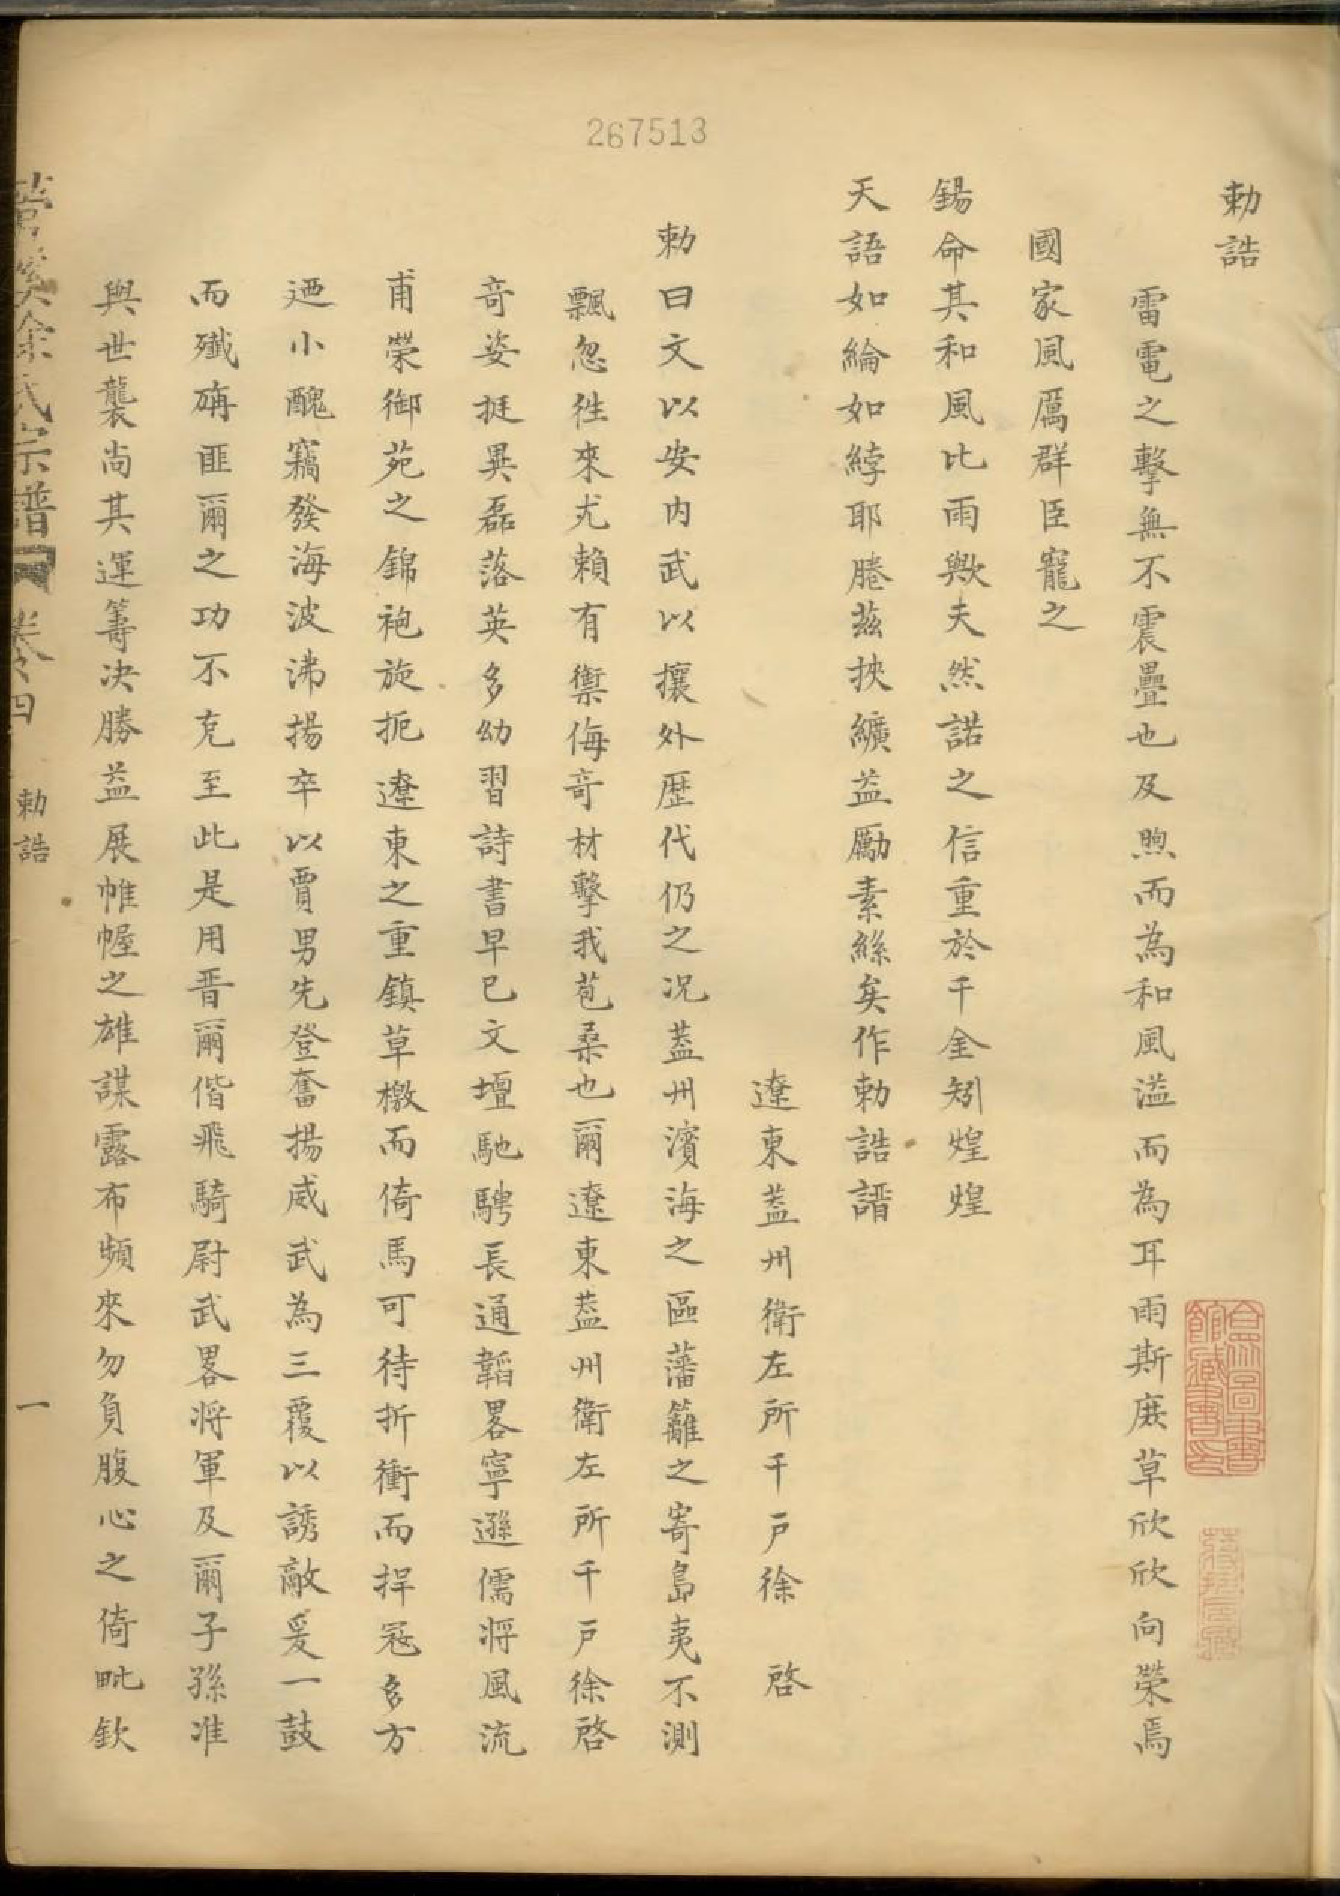 267513
勅誥
雷電之擊無不震疊也及煦而為和風溢而為耳雨斯庶草欣欣向榮焉
國家風厲群臣寵之
錫命其和風比雨歟夫然諾之信重於千金矧煌煌
天語如綸如綍耶勝茲挾纊益勵素絲矣作勅誥譜
遼東蓋州衛左所千戶徐 啓
勅曰文以安內武以攘外歷代仍之況蓋州濱海之區藩籬之寄島夷不測
飄忽徃來尤賴有禦侮竒材擊我苞桑也爾遼東蓋州衛左所千戶徐啓
竒姿挺異磊落英多幼習詩書早已文壇馳騁長通韜畧寧遜儒將風流
甫榮御苑之錦袍旋扼遼東之重鎮草檄而倚馬可待折衝而捍寇多方
迺小醜竊發海波沸揚卒以賈男先登奮揚威武為三覆以誘敵爰一鼓
而殲硦匪爾之功不克至此是用晋爾偕飛騎尉武畧將軍及爾子孫准
與世襲尚其運籌决勝益展帷幄之雄謀露布頻來勿負腹心之倚毗欽
徐氏宗譜
卷四
勅誥
一